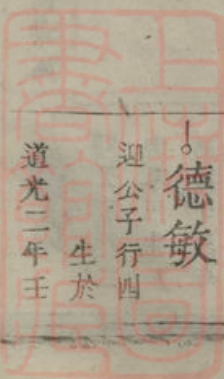 德敏
迎公子行四
生於
道光二年壬